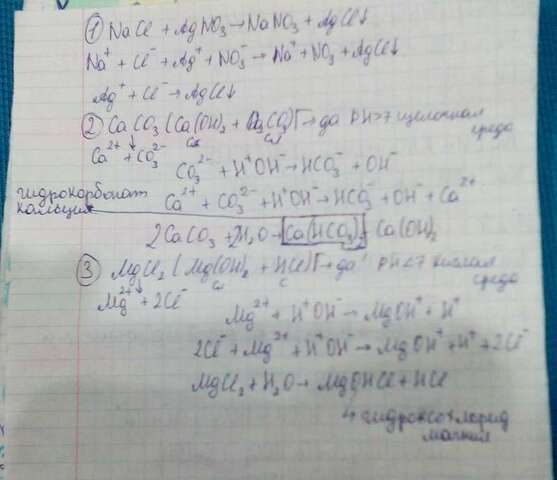 ① NaCl + AgNO₃ → NaNO₃ + AgCl↓
Na⁺ + Cl⁻ + Ag⁺ + NO₃⁻ → Na⁺ + NO₃ + AgCl↓
Ag⁺ + Cl⁻ → AgCl↓
② CaCO₃ (Ca(OH)₂ + Г → да PH>7 щелочная
среда
Ca²⁺ + CO₃²⁻
CO₃²⁻ + H⁺OH⁻ → HCO₃⁻ + OH⁻
гидрокарбонат
кальция
Ca²⁺ + CO₃²⁻ + H⁺OH⁻ → HCO₃⁻ + OH⁻ + Ca²⁺
2CaCO₃ + 2H₂O → Ca(HCO₃)₂ + Ca(OH)₂
③ MgCl₂ (Mg(OH)₂ + HCl) Г → да! PH<7 кислая
среда
Mg²⁺ + 2Cl⁻
Mg²⁺ + H⁺OH⁻ → MgOH⁺ + H⁺
2Cl⁻ + Mg²⁺ + H⁺OH⁻ → MgOH⁺ + H⁺ + 2Cl⁻
MgCl₂ + H₂O → MgOHCl + HCl
↳ гидроксохлорид
магния